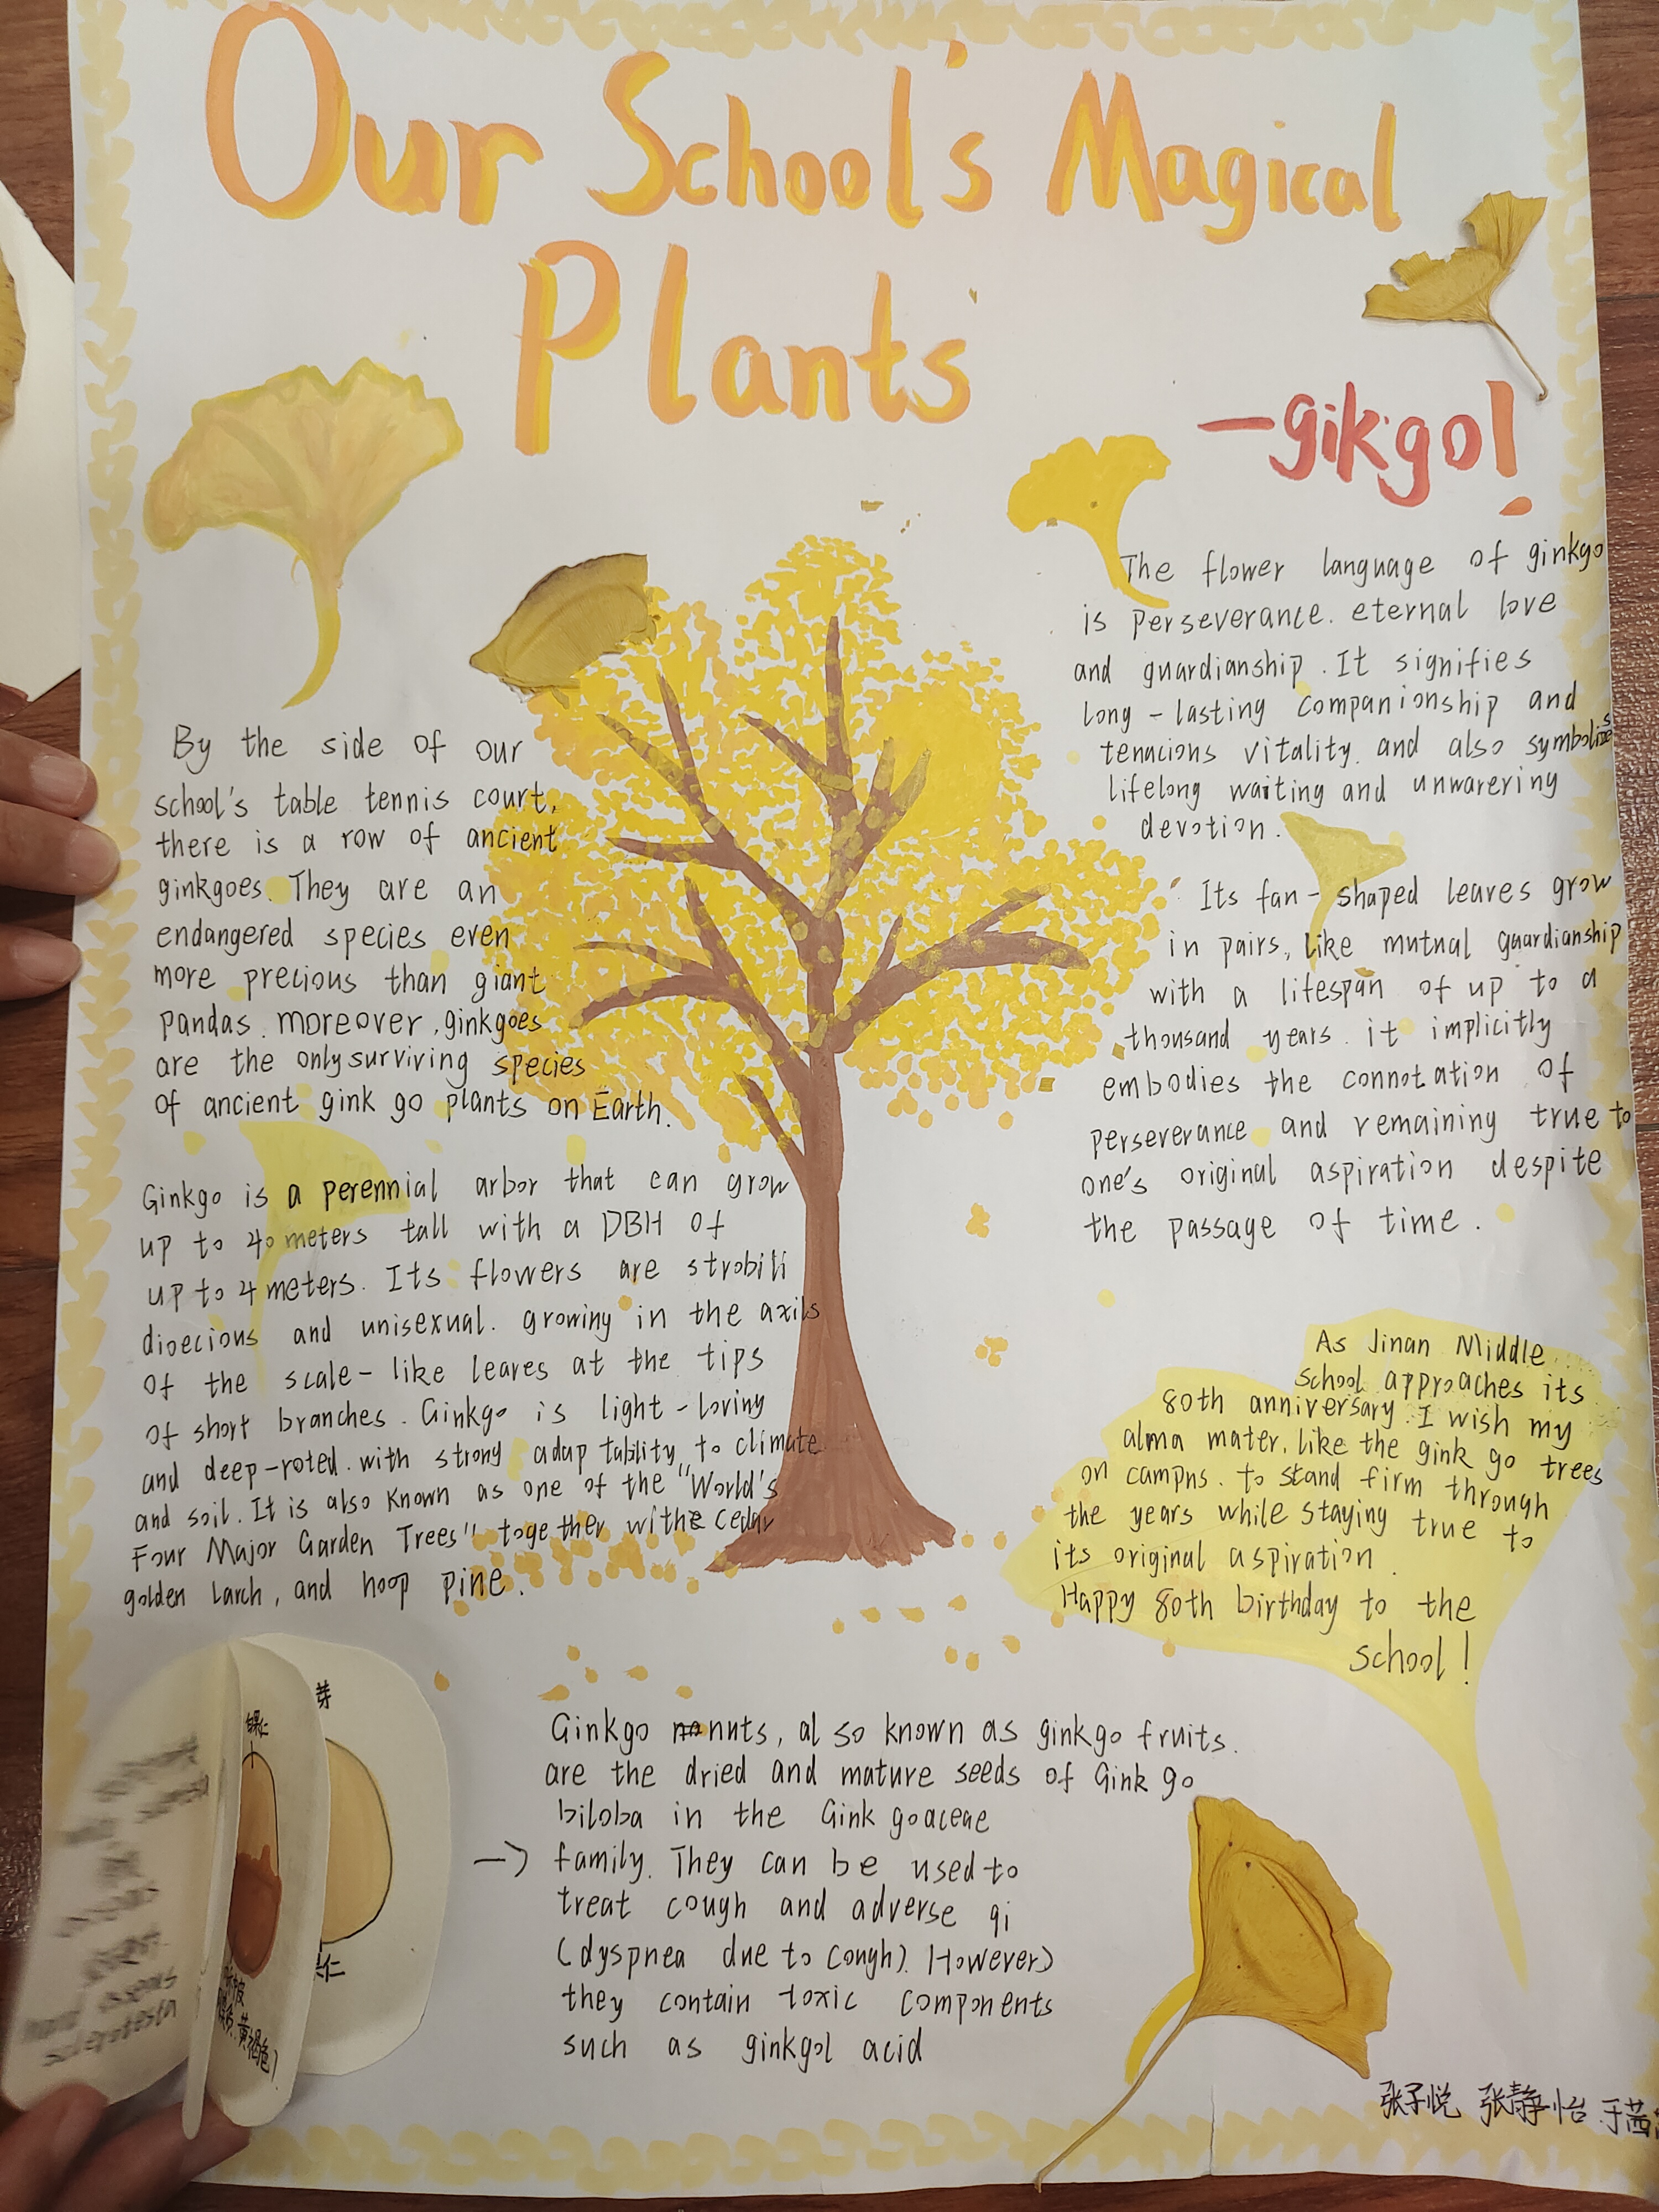 Our School's Magical
Plants
—gikgo!
By the side of our
school's table tennis court,
there is a row of ancient
ginkgoes. They are an
endangered species even
more precious than giant
pandas. moreover, ginkgoes
are the only surviving species
of ancient gink go plants on Earth.
Ginkgo is a perennial arbor that can grow
up to 40 meters tall with a DBH of
up to 4 meters. Its flowers are strobili
dioecious and unisexual. growing in the axils
of the scale-like leaves at the tips
of short branches. Ginkgo is light-loving
and deep-roted. with strong adap tability to climate
and soil. It is also known as one of the "World's
Four Major Garden Trees" together withe cedar
golden larch, and hoop pine.
The flower language of ginkgo
is perseverance. eternal love
and guardianship. It signifies
long-lasting companionship and
tenacions vitality. and also symbolizes
lifelong waiting and unwarering
devotion.
Its fan-shaped leaves grow
in pairs, like mutual guardianship
with a lifespan of up to a
thousand years. it implicitly
embodies the connotation of
perseverance and remaining true to
one's original aspiration despite
the passage of time.
As Jinan Middle
School approaches its
80th anniversary. I wish my
alma mater, like the gink go trees
on campns. to stand firm through
the years while staying true to
its original aspiration.
Happy 80th birthday to the
school!
芽
白果仁
仁
黄褐色)
Ginkgo nnts, al so known as ginkgo fruits.
are the dried and mature seeds of Gink go
biloba in the Gink goaceae
→ family. They can be used to
treat cough and adverse qi
(dyspnea due to cough). However)
they contain toxic components
such as ginkgol acid
张子悦 张静怡 于茜